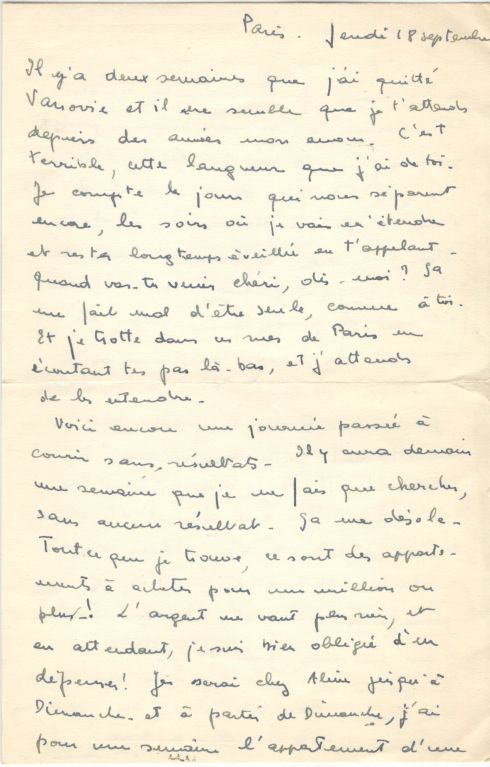 Paris. Jeudi 18 septembre
Il y'a deux semaines que j'ai quitté
Varsovie et il me semble que je t'attends
depuis des années mon amour. C'est
terrible, cette langueur que j'ai de toi.
Je compte les jours qui nous séparent
encore, les soirs où je vais m'étendre
et rester longtemps éveillée en t'appelant.
Quand vas-tu venir chéri, dis-moi? Ça
me fait mal d'être seule, comme à toi.
Et je trotte dans les rues de Paris en
écoutant tes pas là-bas, et j'attends
de les entendre.
Voici encore une journée passée à
courir sans résultats. Il y aura demain
une semaine que je ne fais que chercher,
sans aucun résultat. Ça me désole.
Tout ce que je trouve, ce sont des apparte-
ments à acheter pour un million ou
plus! L'argent ne vaut plus rien, et
en attendant, je suis bien obligée d'en
dépenser! Je serai chez Aline jusqu'à
Dimanche. et à partir de Dimanche, j'ai
pour une semaine l'appartement d'une